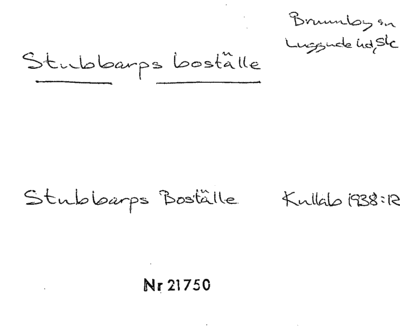 Brunnby sn
Luggude hd, Sk
Stubbarps boställe
Stubbarps Boställe Kullab 1938:12
Nr 21750